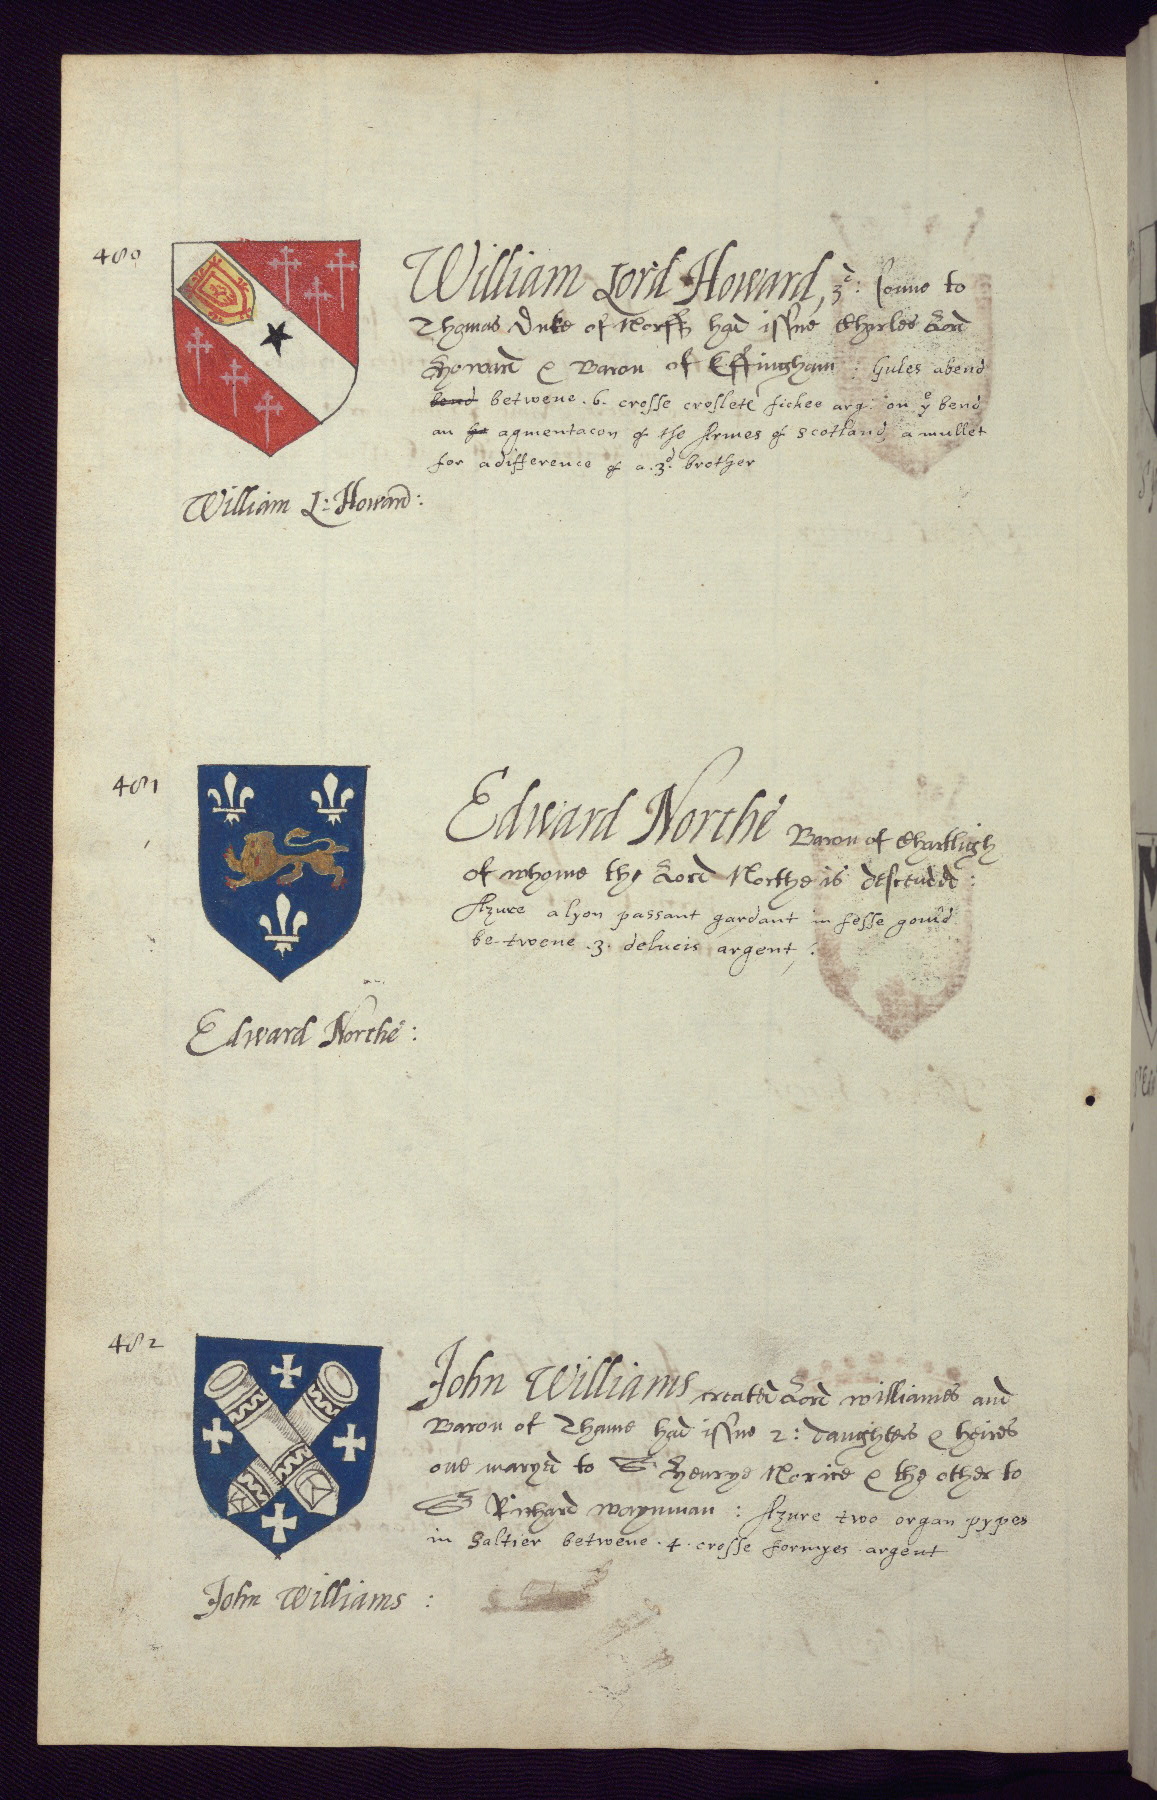 480
William Lord Howard, 3d: sonne to
Thomas Duke of Norff had issue Charles Lord
Howard & Baron of Effingham : Gules a bend
bend betwene .6. crosse croslete fichee arg: on ye bend
an agmentacon of the Armes of Scotland, a mullet
for a difference of a .3d. brother
William L: Howard:
481
Edward Northe Baron of Chartligh
of whome the Lord Northe is descended:
Azure a lyon passant gardant in fesse gould
betwene .3. delucis argent,:
Edward Northe:
482
John Williams created Lord williames and
Baron of Thame had issue 2: daughters & heires
one maryed to Sr Henrye Norice & the other to
Sr Richard waynman : Azure two organ pypes
in Saltier betwene .4. crosse formyes argent
John Williams :